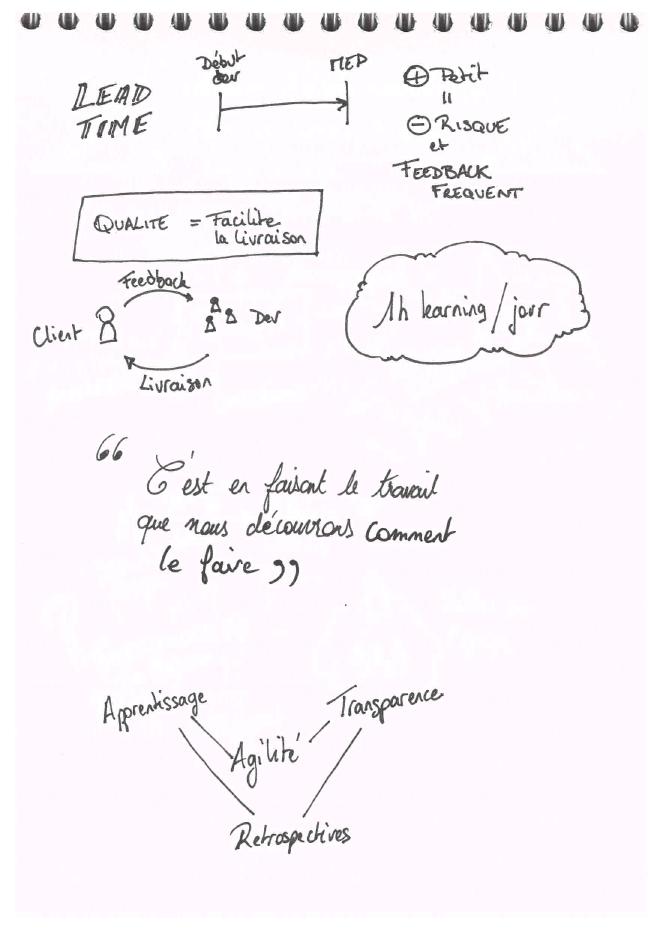 LEAD
TIME
Début
dev
MEP
+ Petit
=
- RISQUE
et
FEEDBACK
FREQUENT
QUALITE = Facilite
la livraison
Feedback
Client
Dev
Livraison
1h learning / jour
“ C'est en faisant le travail
que nous découvrons comment
le faire ”
Apprentissage
Transparence
Agilité
Retrospectives